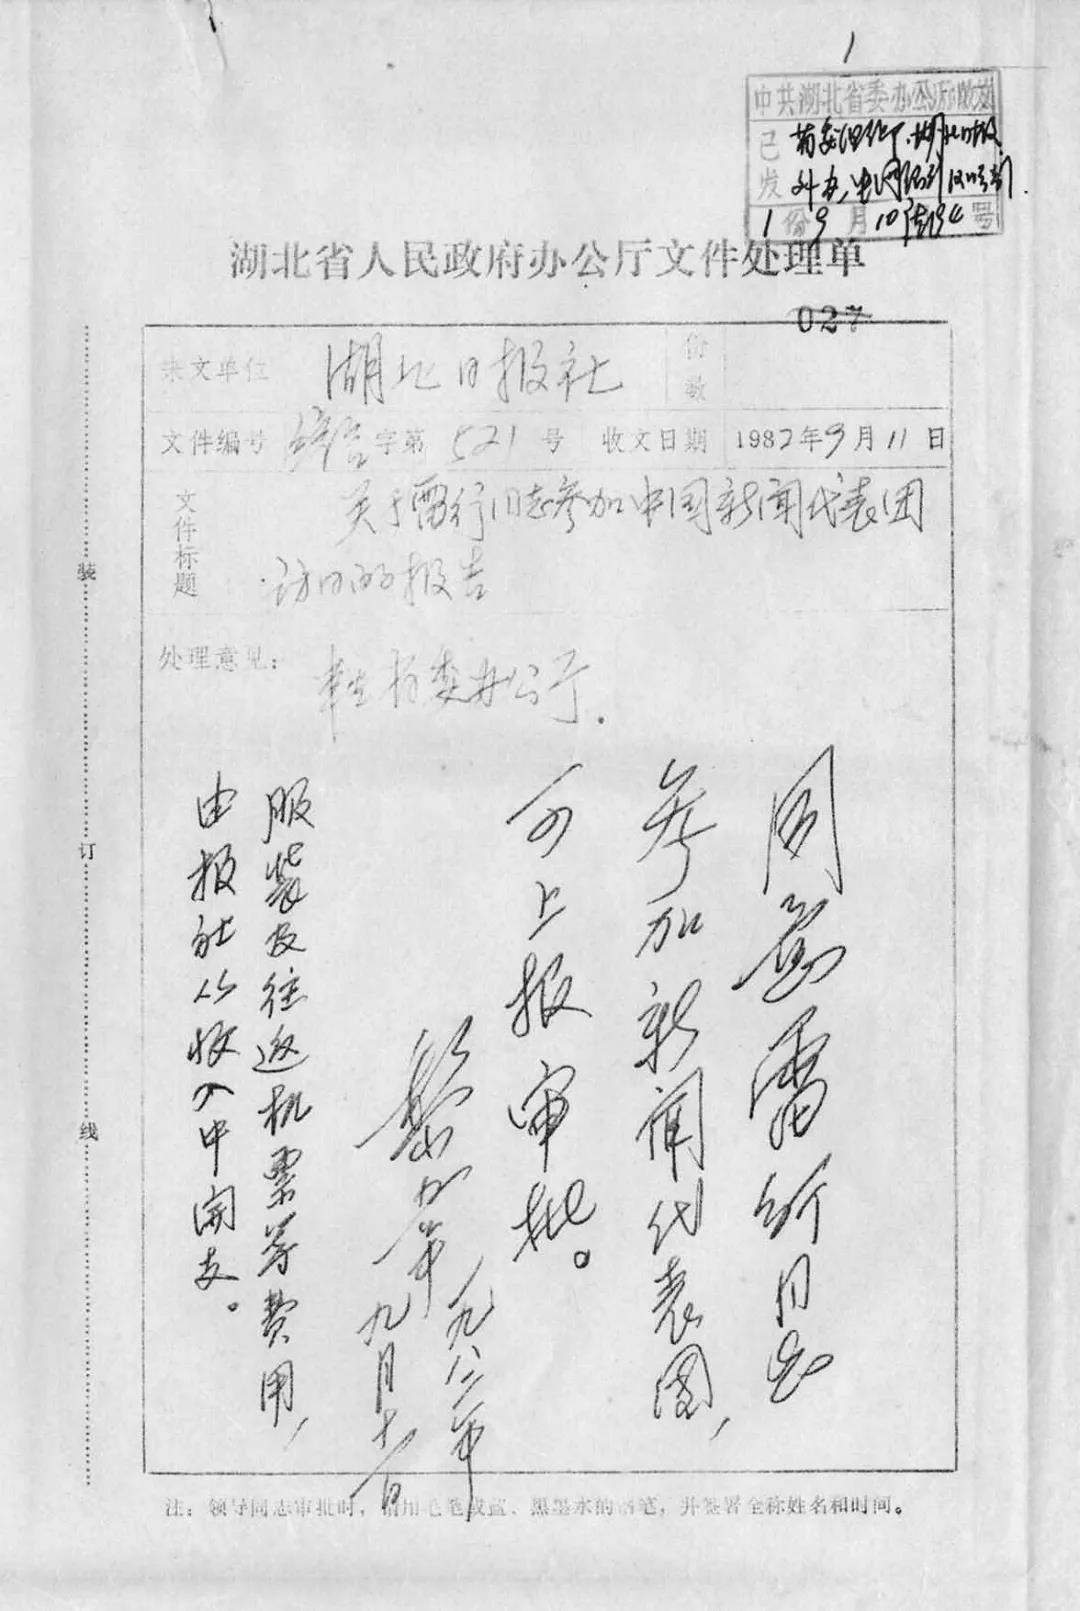 1
中共湖北省委办公厅收文
已发
省委组织部、湖北日报
外办
1份 9月10
号
湖北省人民政府办公厅文件处理单
027
来文单位 湖北日报社 份数
文件编号 综合字第521号 收文日期 1982年9月11日
文件标题 关于雷行同志参加中国新闻代表团
访日的报告
处理意见：
省委办公厅.
同意雷行同志
参加新闻代表团，
可上报审批。
黎韦
一九八二年
九月十一日
服装及往返机票等费用，
由报社从收入中开支。
装
订
线
注：领导同志审批时，请用毛笔或蓝、黑墨水的钢笔，并签署全称姓名和时间。